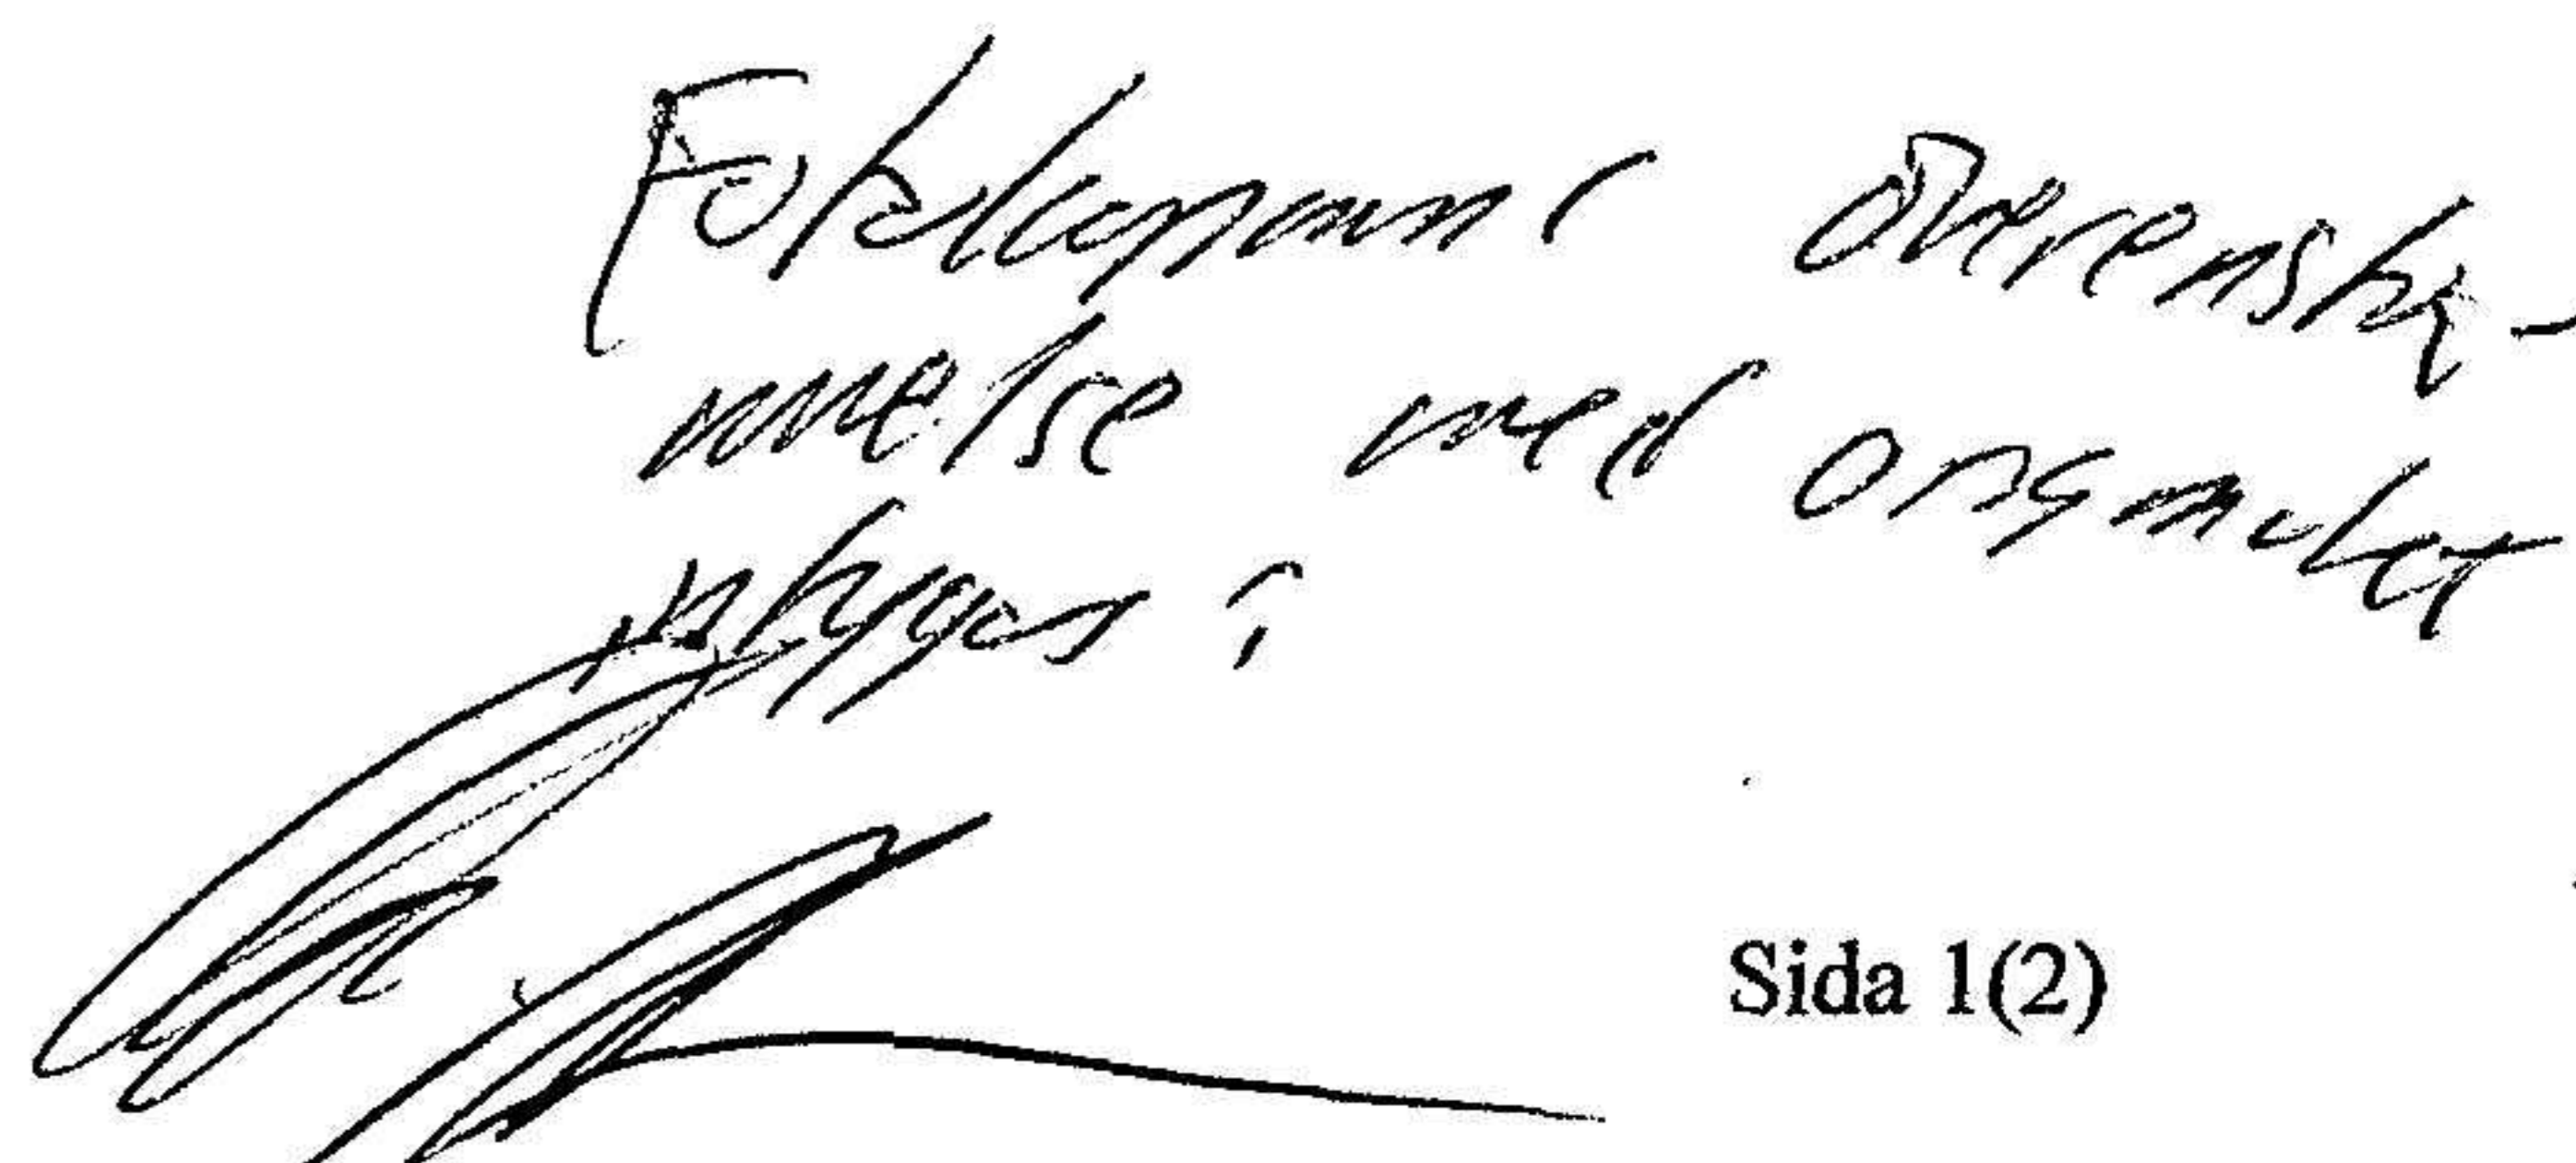 Fotokopians överensstä-
mmelse med originalet
intygas :
Sida 1(2)